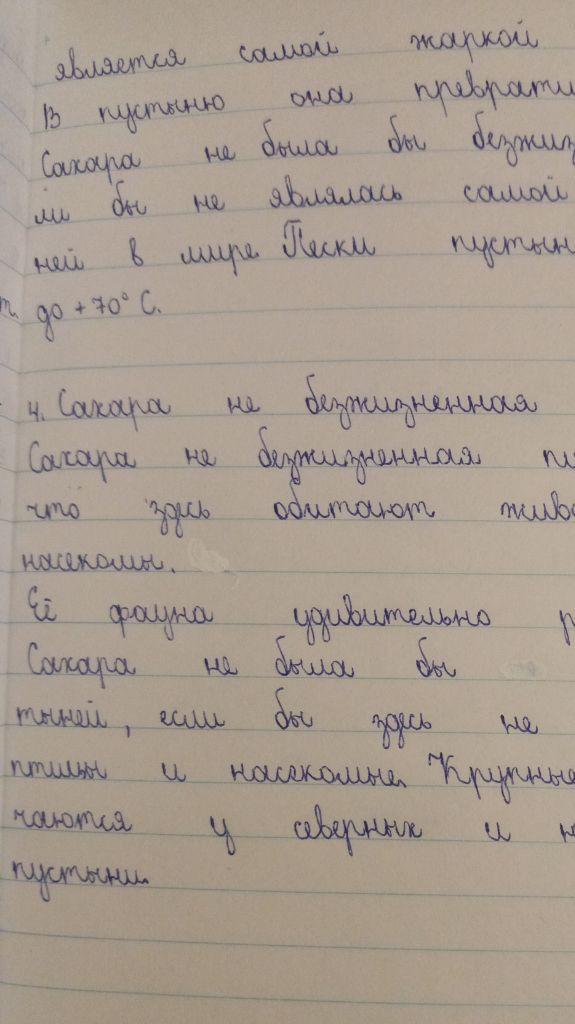 является самой жаркой
В пустыню она преврати
Сахара не была бы безжиз
ли бы не являлась самой
ней в мире. Пески пустын
до +70° С.
4. Сахара не безжизненная
Сахара не безжизненная
что здесь обитают живо
насекомы.
Её фауна удивительно р
Сахара не была бы
тыней, если бы здесь не
птицы и насекомые. Крупные
чаются у северных и
пустыни.